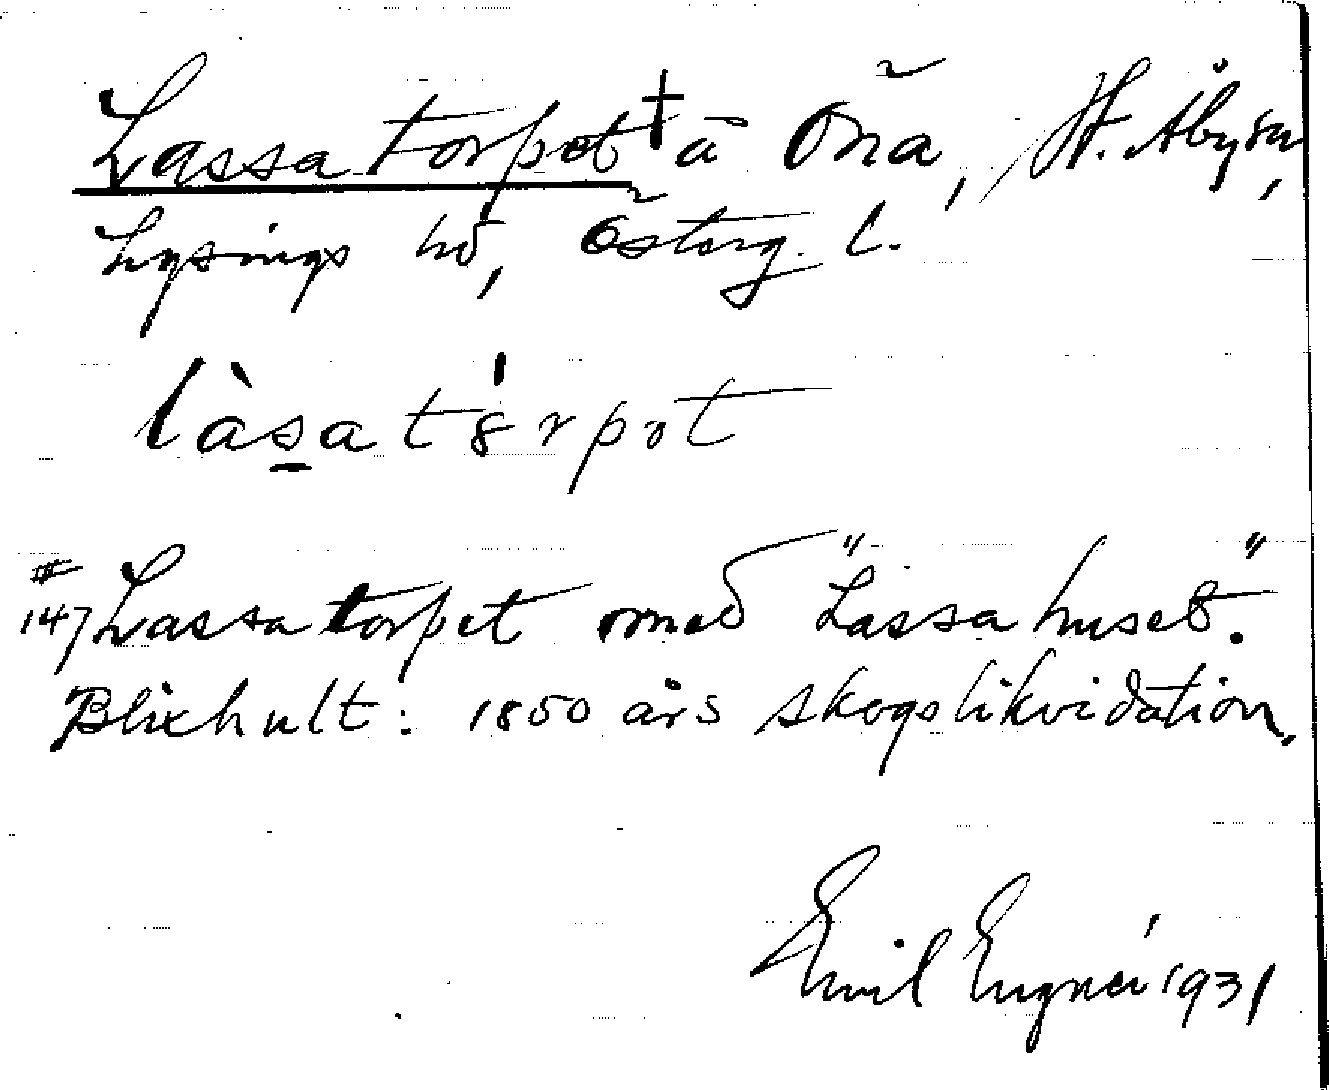 Lassatorpet † å Öna, H. Åby sn,
Lysings hd, Österg. l.
làsatȯrpət
# 147 Lassatorpet med "Lassahuset".
Blixhult: 1850 års skogslikvidation.
Emil 1931